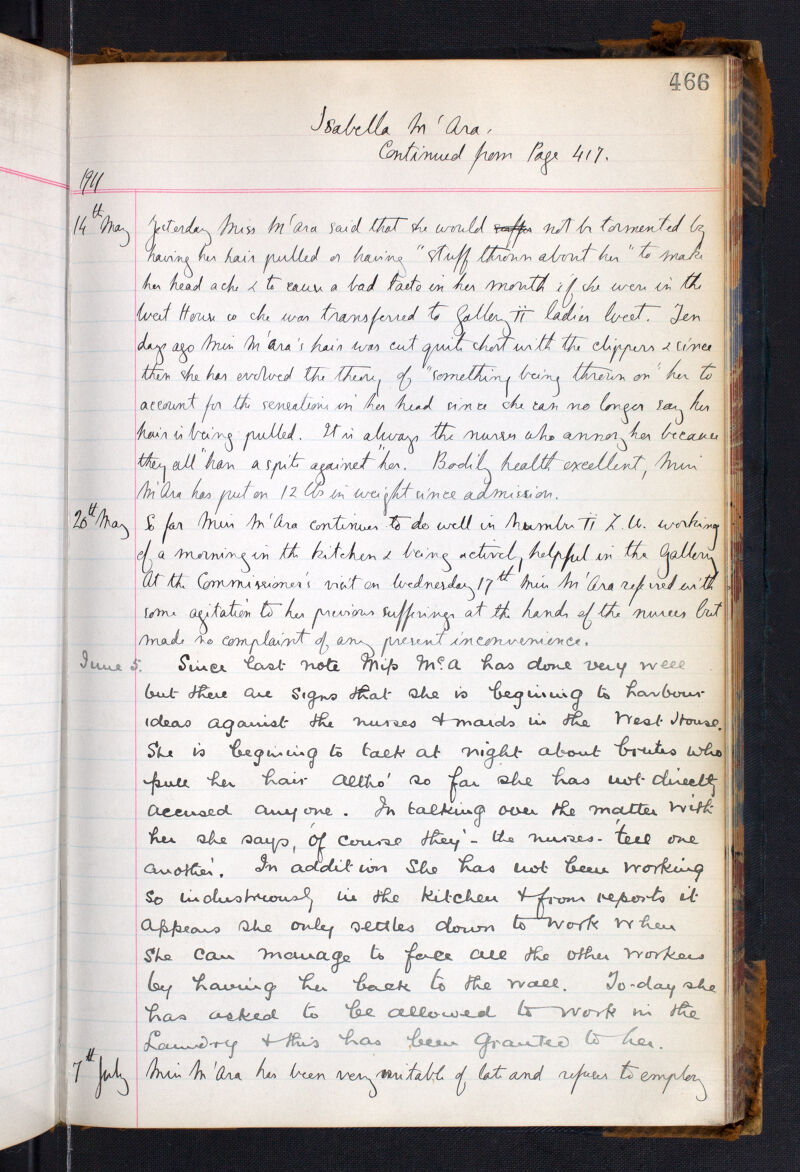 466
Isabella M'Ara.
Continued from Page 417.
1911
14th May Yesterday Miss M'Ara said that she would suffer not be tormented by
having her hair pulled or having "stuff thrown about her" to make
her head ache & to cause a bad taste in her mouth if she were in the
West House so she was transferred to Gallery II ladies West. Ten
days ago Miss M'Ara's hair was cut quite short with the clippers & since
then she has evolved the theory of "something being thrown on" her to
account for the sensations in her head since she can no longer say her
hair is being pulled. It is always the nurses who annoy her because
they all "han a spite against" her. Bodily health excellent, Miss
M'Ara has put on 12 lbs in weight since admission.
20th May So far Miss M'Ara continues to do well in Number II L.W. working
of a morning in the kitchen & being actively helpful in the Gallery
At the Commissioner's visit on Wednesday 17th Miss M'Ara referred with
some agitation to her previous sufferings at the hands of the nurses but
made no complaint of any present inconvenience.
June 5. Since last note Miss McA has done very well
but there are signs that she is beginning to harbour
ideas against the nurses & maids in the West House.
She is beginning to talk at night about brutes who
pull her hair altho' so far she has not directly
accused any one. In talking over the matter with
her she says, 'of course they' - the nurses - 'tell one
another'. In addition she has not been working
so industriously in the kitchen & from reports it
appears she only settles down to work when
she can manage to face all the other workers
by having her back to the wall. To-day she
has asked to be allowed to work in the
Laundry & this has been granted to her.
7th July Miss M'Ara has been very irritable of late and refuses to employ